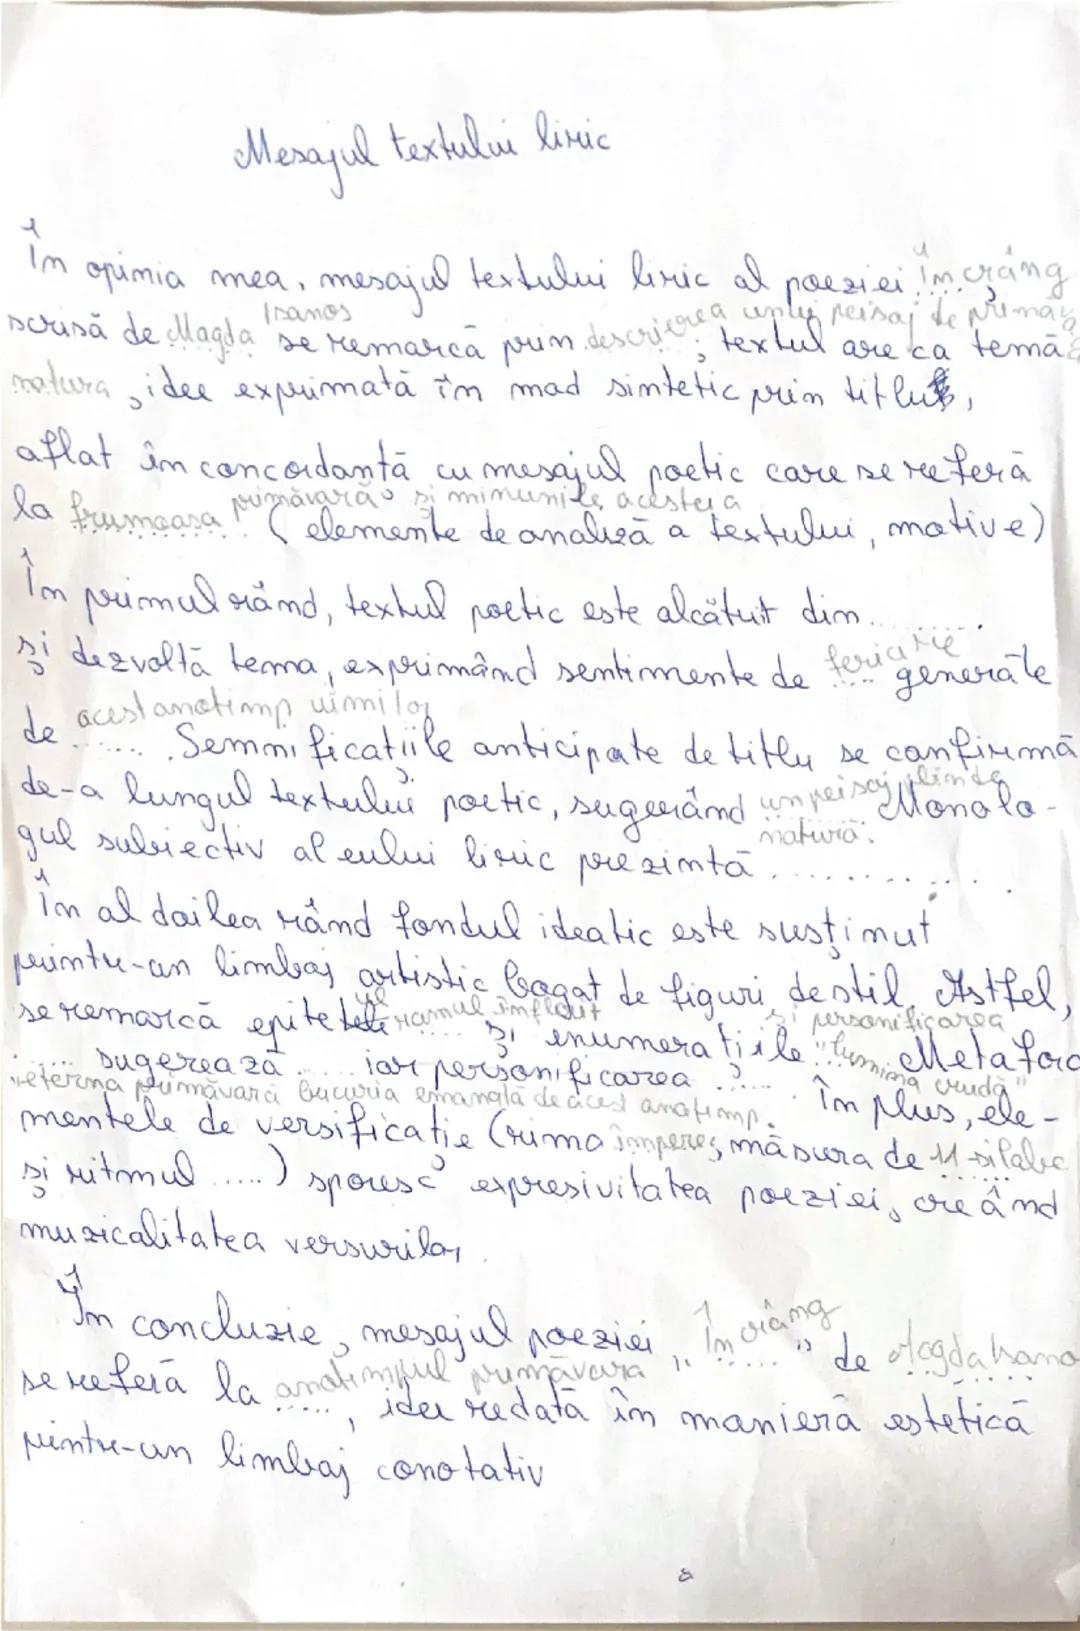 Mesajul textului liric
În opinia mea, mesajul textului liric al poeziei În crâng
scrisă de Magda Isanos se remarcă prin descrierea unui peisaj de primăvară; textul are ca temă
natura, idee exprimată în mod sintetic prin titlul,
aflat în concordanță cu mesajul poetic care se referă
la frumoasa primăvară și minunile acesteia (elemente de analiză a textului, motive)
În primul rând, textul poetic este alcătuit din ........
și dezvoltă tema, exprimând sentimente de fericire generate
de acest anotimp uimitor. Semnificațiile anticipate de titlu se confirmă
de-a lungul textului poetic, sugerând un peisaj plin de natură. Monolo-
gul subiectiv al eului liric prezintă ..........
În al doilea rând fondul ideatic este susținut
printr-un limbaj artistic bogat de figuri de stil. Astfel,
se remarcă epitetele ramul înflorit și enumerațiile și personificarea "lumina crudă" Metafora
..... sugerează ..... iar personificarea ..... În plus, ele-
eterna primăvară bucuria emanată de acest anotimp.
mentele de versificație (rima împerec, măsura de 11 silabe
și ritmul .....) sporesc expresivitatea poeziei, creând
muzicalitatea versurilor.
În concluzie, mesajul poeziei „În crâng" de Magda Isano
se referă la anotimpul primăvara, idee redată în manieră estetică
printr-un limbaj conotativ